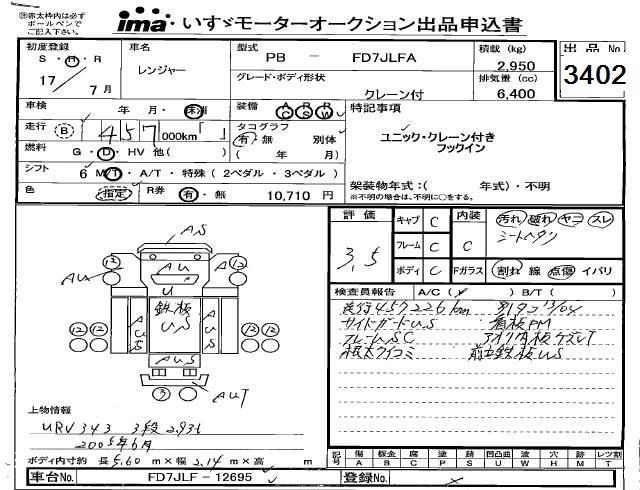 ※赤太枠内は必ず
ボールペンで
ご記入下さい。
ima・いすゞモーターオークション出品申込書
初度登録
S・H・R
17 / 7月
車名
レンジャー
型式
PB － FD7JLFA
グレード・ボディ形状
クレーン付
積載 (kg)
2,950
排気量 (cc)
6,400
出品No
3402
車検 年 月・抹消
装備 AC RS W
走行 B 457 000km
タコグラフ
有・無 別体
( 年 月)
燃料 G・D・HV 他( )
シフト 6 M/T・A/T・特殊 (2ペダル・3ペダル)
色 指定 R券 有・無 10,710 円
特記事項
ユニック・クレーン付き
フックイン
架装物年式:( 年式)・不明
※不明の場合は、不明に○をする。
評価
3.5
キャブ C
フレーム C
ボディ C
内装
C
Fガラス
汚れ 破れ ヤコ スレ
シートヘタリ
割れ 線 点傷 イバリ
検査員報告 A/C( ) B/T( )
走行457226km 別タコ13/04
サイドガードUS 看板PM
フレームSC アオリ内板ケズレT
根太ウイコミ 前立鉄板US
AS
AU
U
12 12
AU
鉄板
US
AUS AUS
12 12 12 12
AUS
3
AUT
上物情報
URV343 3段 2.93t
2005年6月
ボディ内寸約 長 5.60 m×幅 2.14 m×高 m
記号 傷A 板金B 腐C 塗P 錆S 凹凸曲U 波W 穴H 跡M レツ割T
車台No. FD7JLF－12695
登録No.